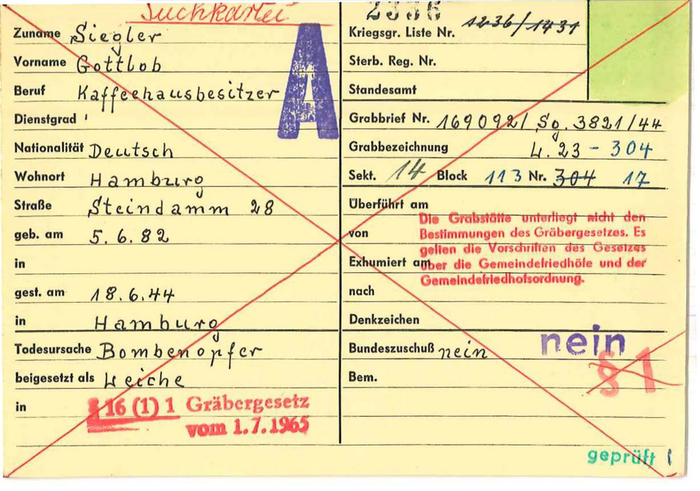 Suchkartei
2336
Zuname Siegler
Vorname Gottlob
Beruf Kaffeehausbesitzer
Dienstgrad
Nationalität Deutsch
Wohnort Hamburg
Straße Steindamm 28
geb. am 5.6.82
in
gest. am 18.6.44
in Hamburg
Todesursache Bombenopfer
beigesetzt als Leiche
in
§ 16 (1) 1 Gräbergesetz
vom 1.7.1965
A
Kriegsgr. Liste Nr. 1236/1431
Sterb. Reg. Nr.
Standesamt
Grabbrief Nr. 169092/ So. 3821/44
Grabbezeichnung L. 23 - 304
Sekt. 14 Block 113 Nr. 304 17
Überführt am
von
Exhumiert am
nach
Die Grabstätte unterliegt nicht den
Bestimmungen des Gräbergesetzes. Es
gelten die Vorschriften des Gesetzes
über die Gemeindefriedhöfe und der
Gemeindefriedhofsordnung.
Denkzeichen
Bundeszuschuß nein
nein
Bem.
§ 1
geprüft